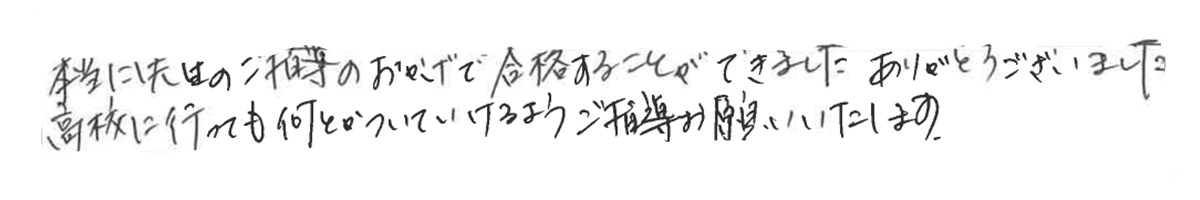 本当に先生のご指導のおかげで合格することができました ありがとうございました
高校に行っても何とかついていけるようご指導お願いいたします